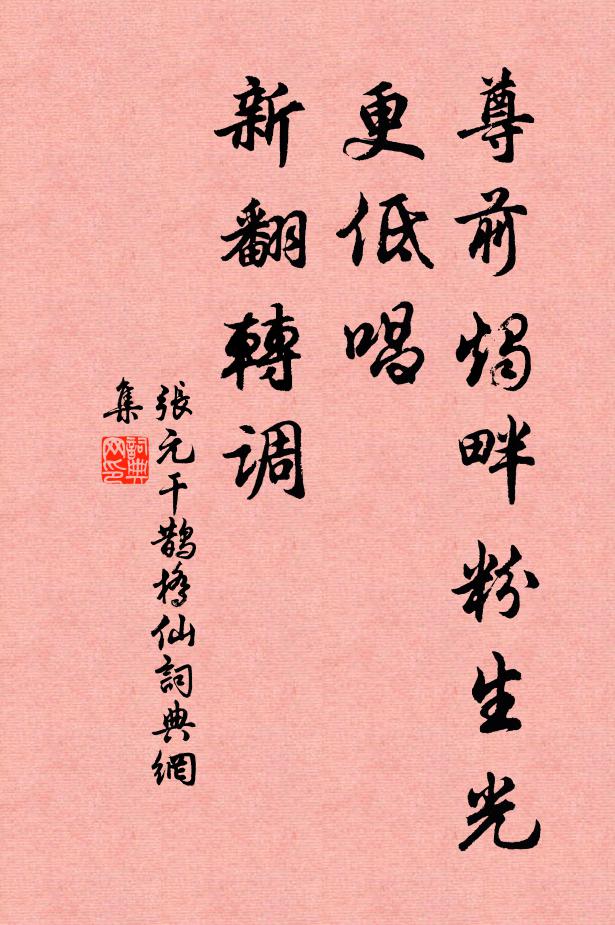 尊前燭畔粉生光
更低唱
新翻轉調
張元干鵲橋仙詞典網
集
詞典网印